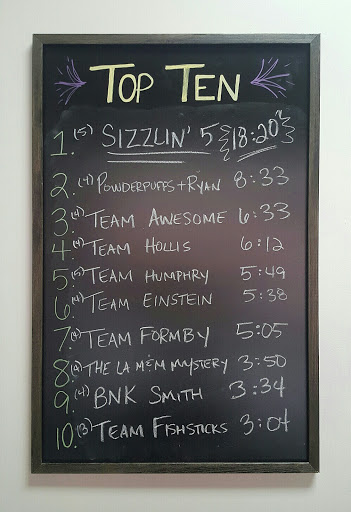 TOP TEN
1. (5) SIZZLIN' 5 {18:20}
2. (4) POWDERPUFFS + RYAN 8:33
3. (4) TEAM AWESOME 6:33
4. (4) TEAM HOLLIS 6:12
5. (5) TEAM HUMPHRY 5:49
6. (4) TEAM EINSTEIN 5:38
7. TEAM FORMBY 5:05
8. THE LA M&M MYSTERY 3:50
9. (4) BNK SMITH 3:34
10. (3) TEAM FISHSTICKS 3:04